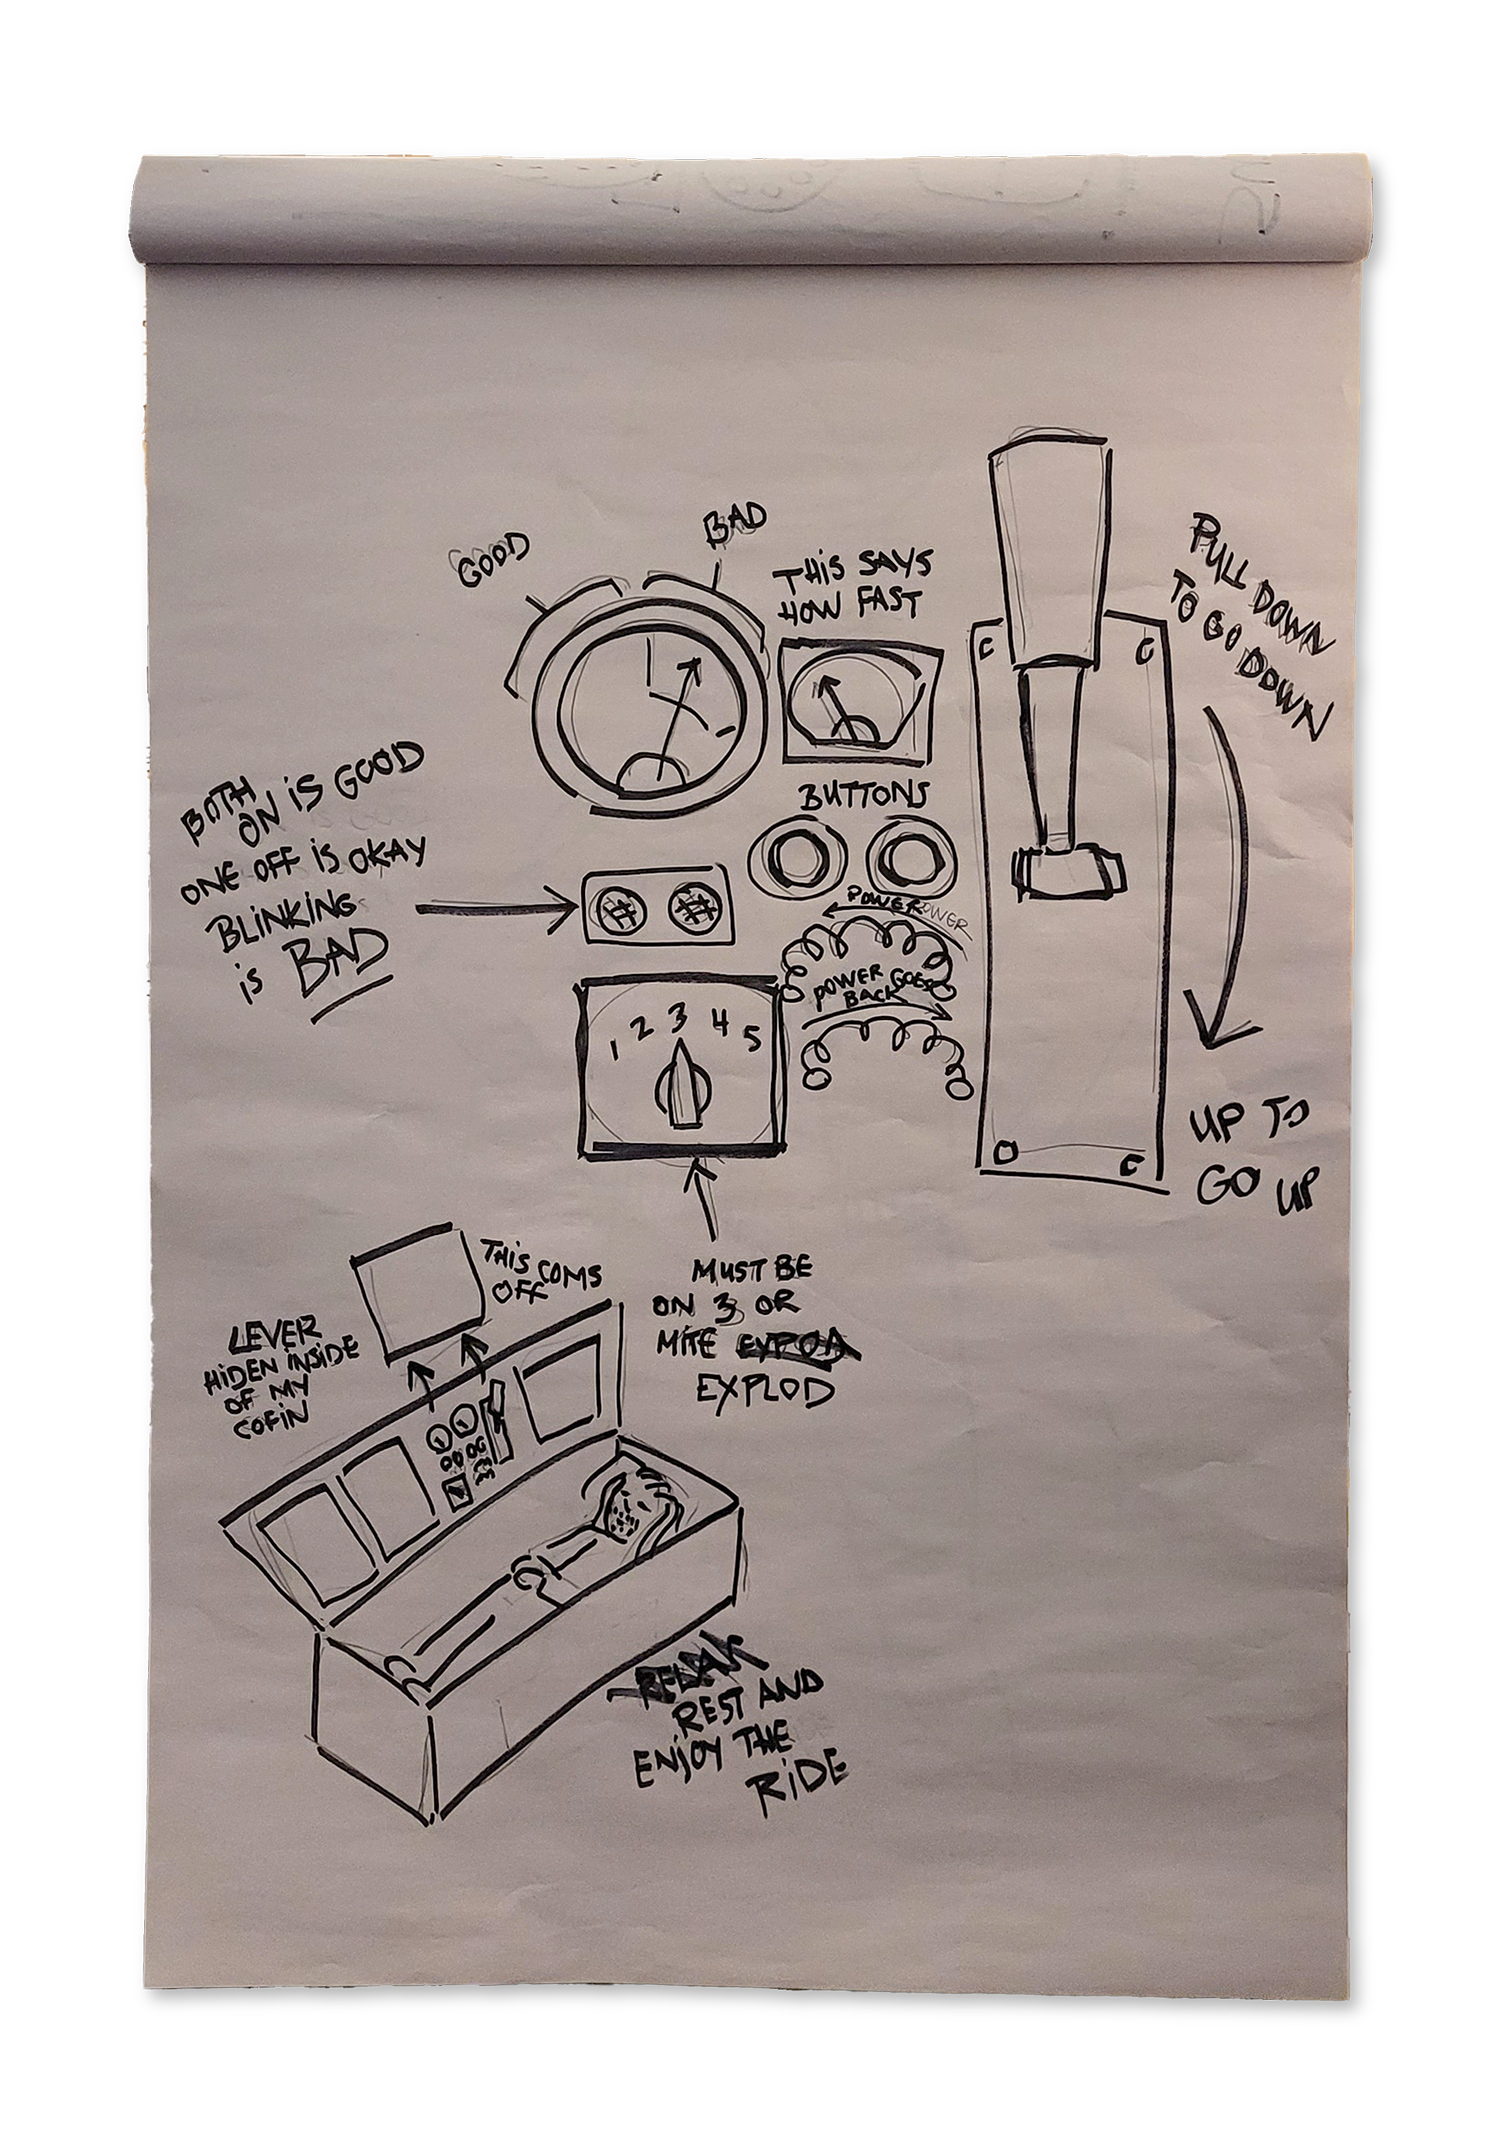 GOOD
BAD
THIS SAYS
HOW FAST
PULL DOWN
TO GO DOWN
BOTH
ON IS GOOD
ONE OFF IS OKAY
BLINKING
is BAD
BUTTONS
POWER
POWER GOES
BACK
1 2 3 4 5
UP TO
GO UP
MUST BE
ON 3 OR
MITE
EXPLOD
THIS COMS
OFF
LEVER
HIDEN INSIDE
OF MY
COFIN
RELAX
REST AND
ENJOY THE
RIDE